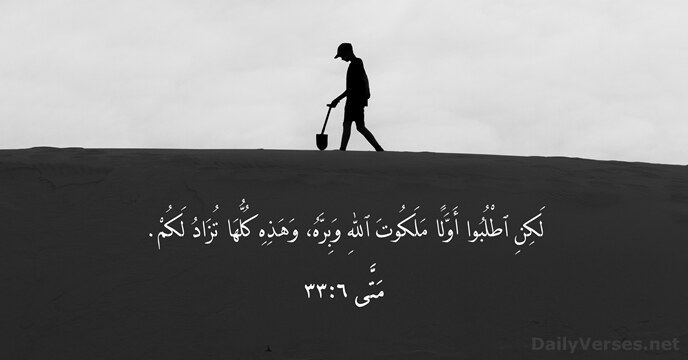 لَكِنِ ٱطْلُبُوا أَوَّلًا مَلَكُوتَ ٱللهِ وَبِرَّهُ، وَهَذِهِ كُلُّهَا تُزَادُ لَكُمْ.
مَتَّى ٦:٣٣
DailyVerses.net